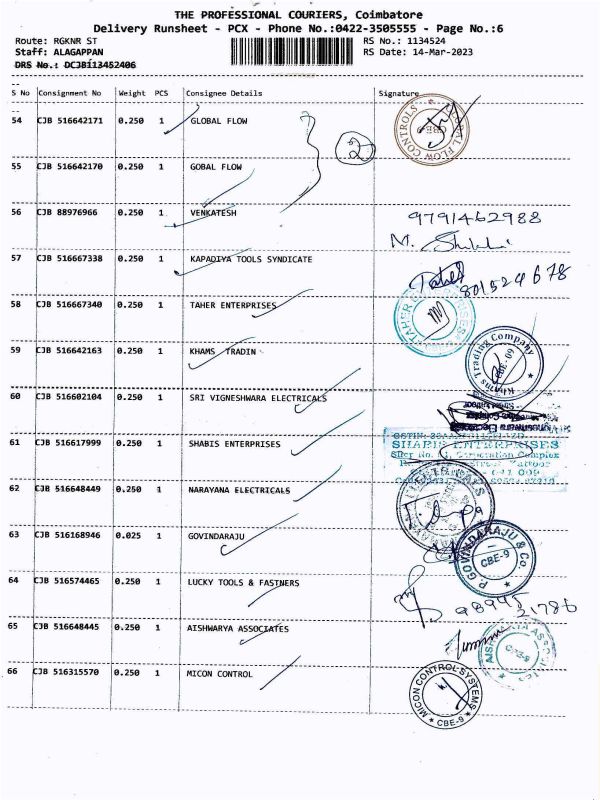 THE PROFESSIONAL COURIERS, Coimbatore
Delivery Runsheet - PCX - Phone No.:0422-3505555 - Page No.:6
Route: RGKNR ST RS No.: 1134524
Staff: ALAGAPPAN RS Date: 14-Mar-2023
DRS No.: DCJB113452406
S No Consignment No Weight PCS Consignee Details Signature
54 CJB 516642171 0.250 1 GLOBAL FLOW
55 CJB 516642170 0.250 1 GOBAL FLOW
2
FLOW CONTROLS CBE-9
56 CJB 88976966 0.250 1 VENKATESH 9791462988
M.
57 CJB 516667338 0.250 1 KAPADIYA TOOLS SYNDICATE
Taher 801524678
58 CJB 516667340 0.250 1 TAHER ENTERPRISES
TAHER
59 CJB 516642163 0.250 1 KHAMS TRADIN
Khams Trading Company CBE-09
60 CJB 516602104 0.250 1 SRI VIGNESHWARA ELECTRICALS
61 CJB 516617999 0.250 1 SHABIS ENTERPRISES
SHABIS ENTERPRISES
Corporation Complex
62 CJB 516648449 0.250 1 NARAYANA ELECTRICALS
63 CJB 516168946 0.025 1 GOVINDARAJU
P. GOVINDARAJU & Co. CBE-9
64 CJB 516574465 0.250 1 LUCKY TOOLS & FASTNERS
98945
21786
65 CJB 516648445 0.250 1 AISHWARYA ASSOCIATES
CBE-9
66 CJB 516315570 0.250 1 MICON CONTROL
MICON CONTROL SYSTEMS CBE-9